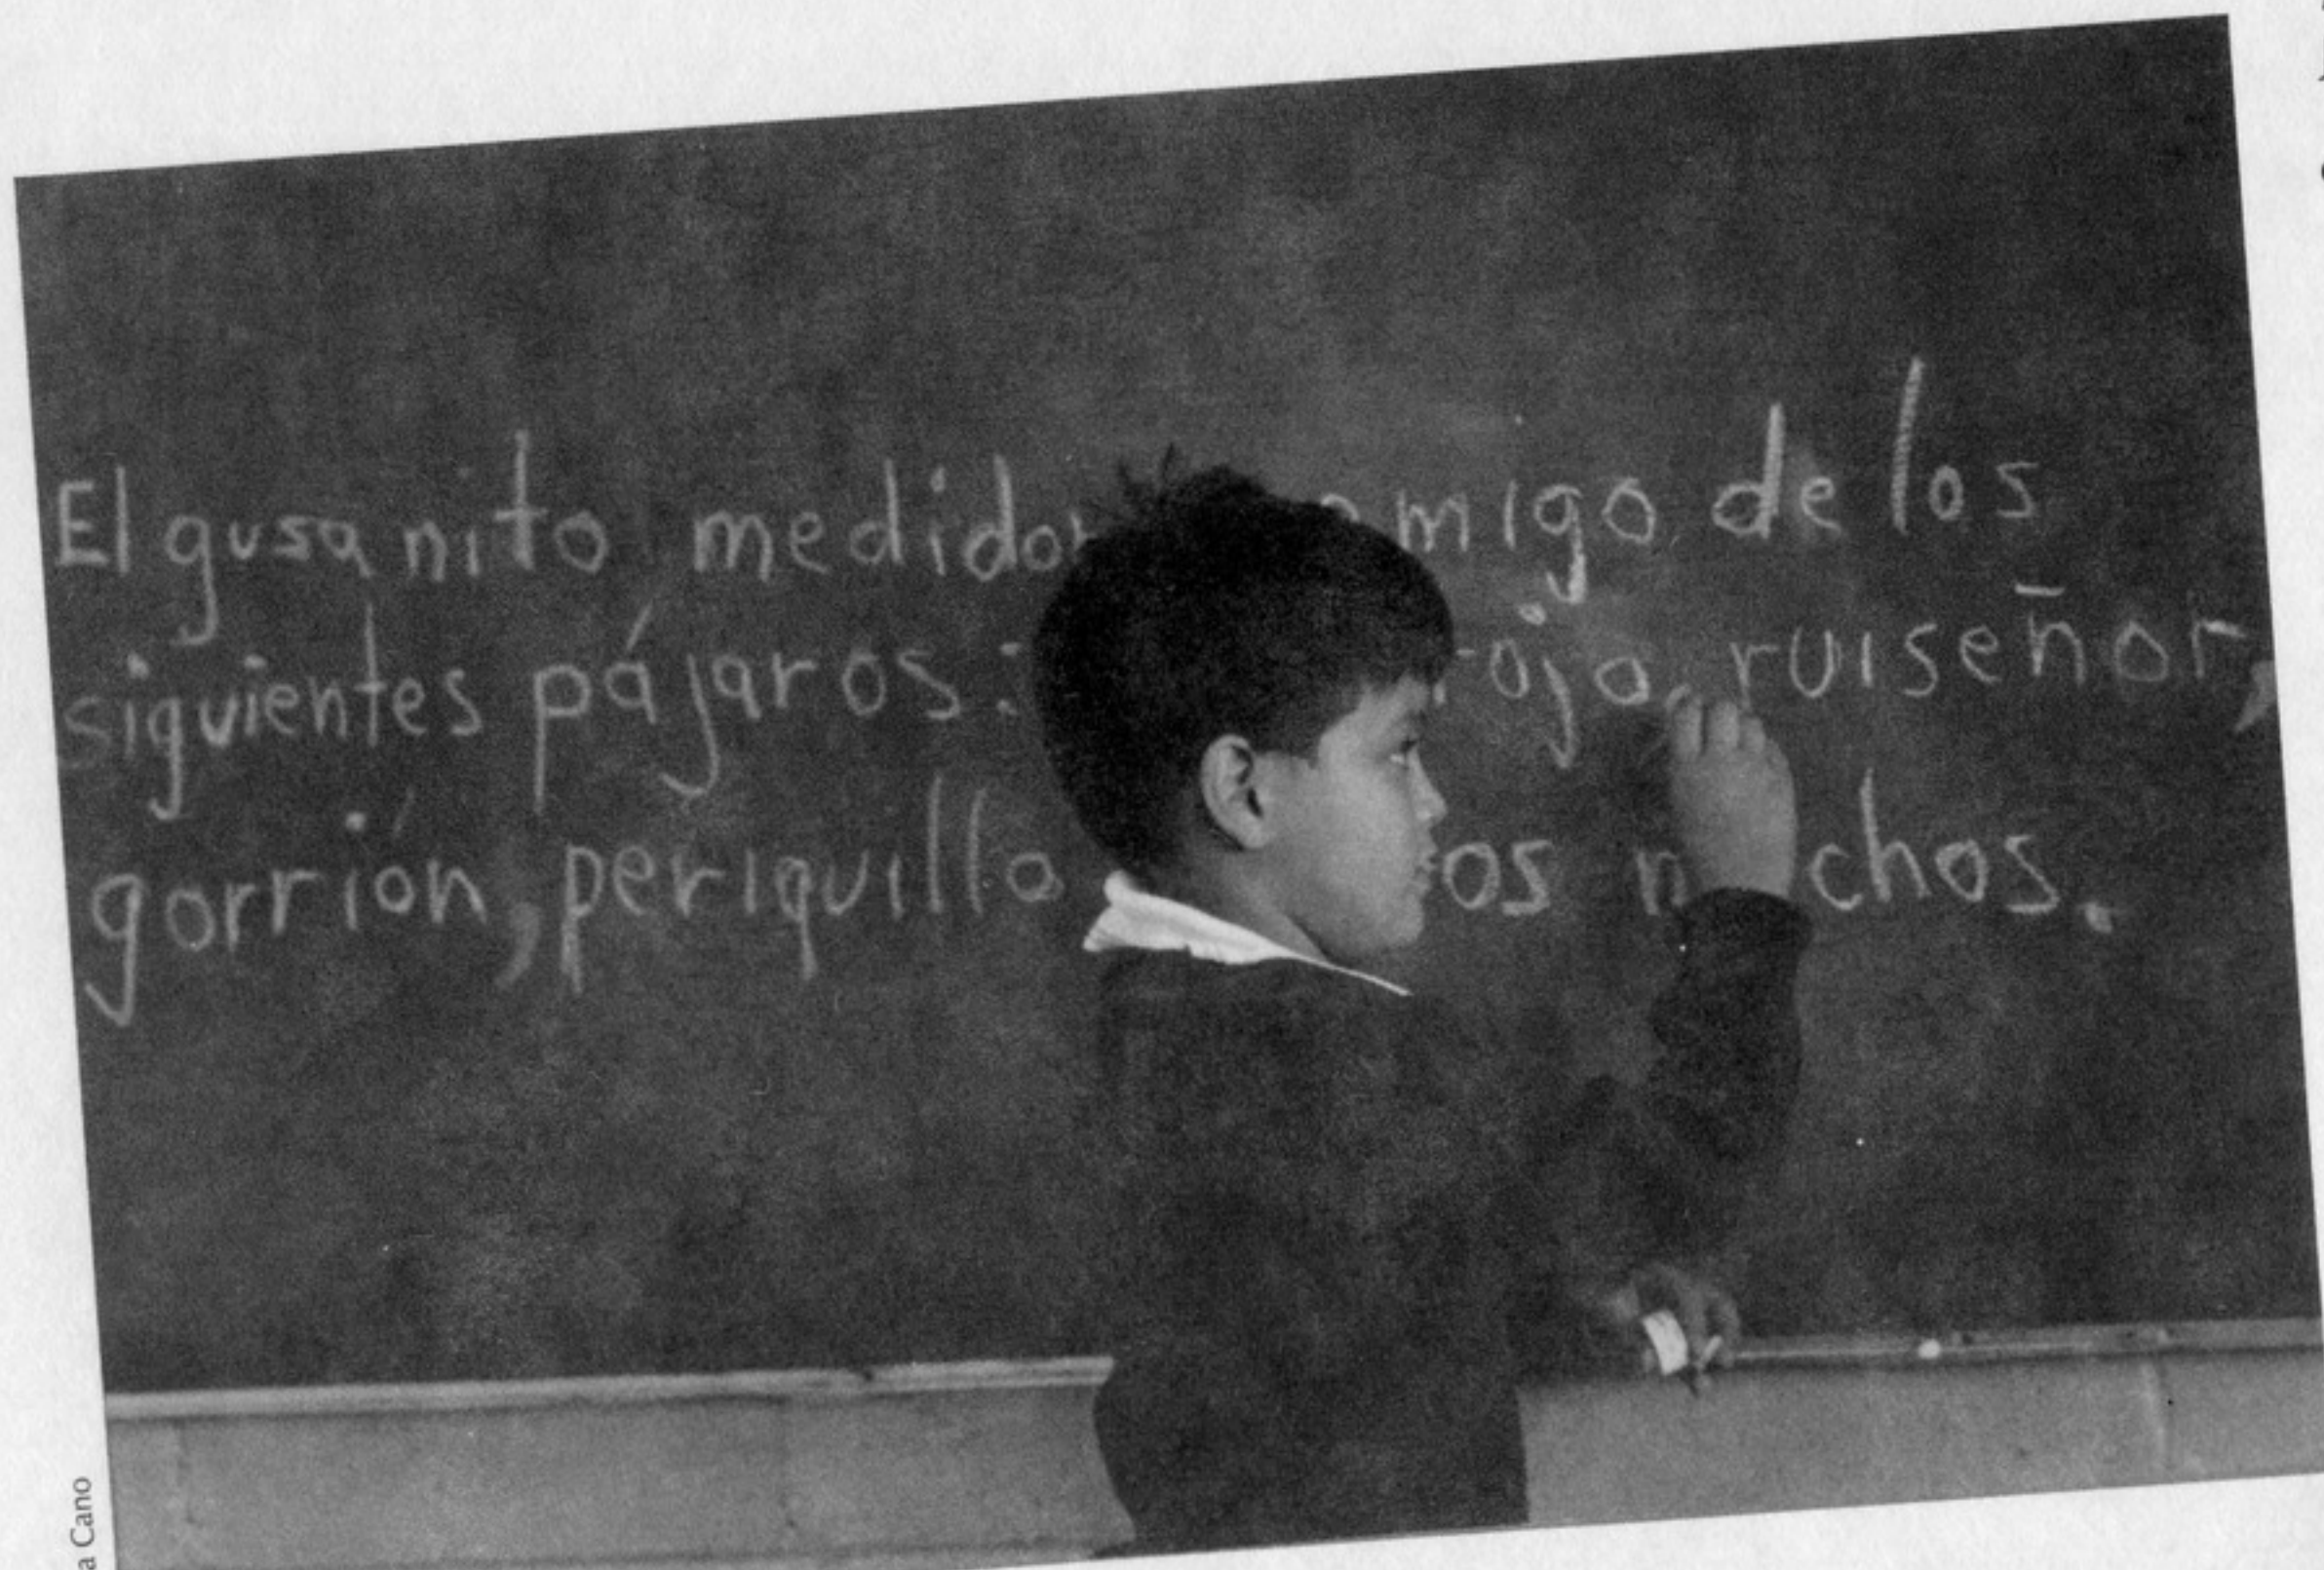 El gusanito medidor amigo de los
siguientes pájaros: rojo, ruiseñor,
gorrión, periquillo
a Cano